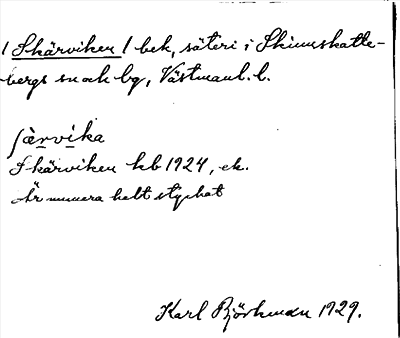 / Skärviken / bek, säteri i Skinnskatte-
bergs sn ok bg, Västmanl. l.
ʃär̀vika
Skärviken kb 1924, ek.
Är numera helt styckat
Karl Björkman 1929.